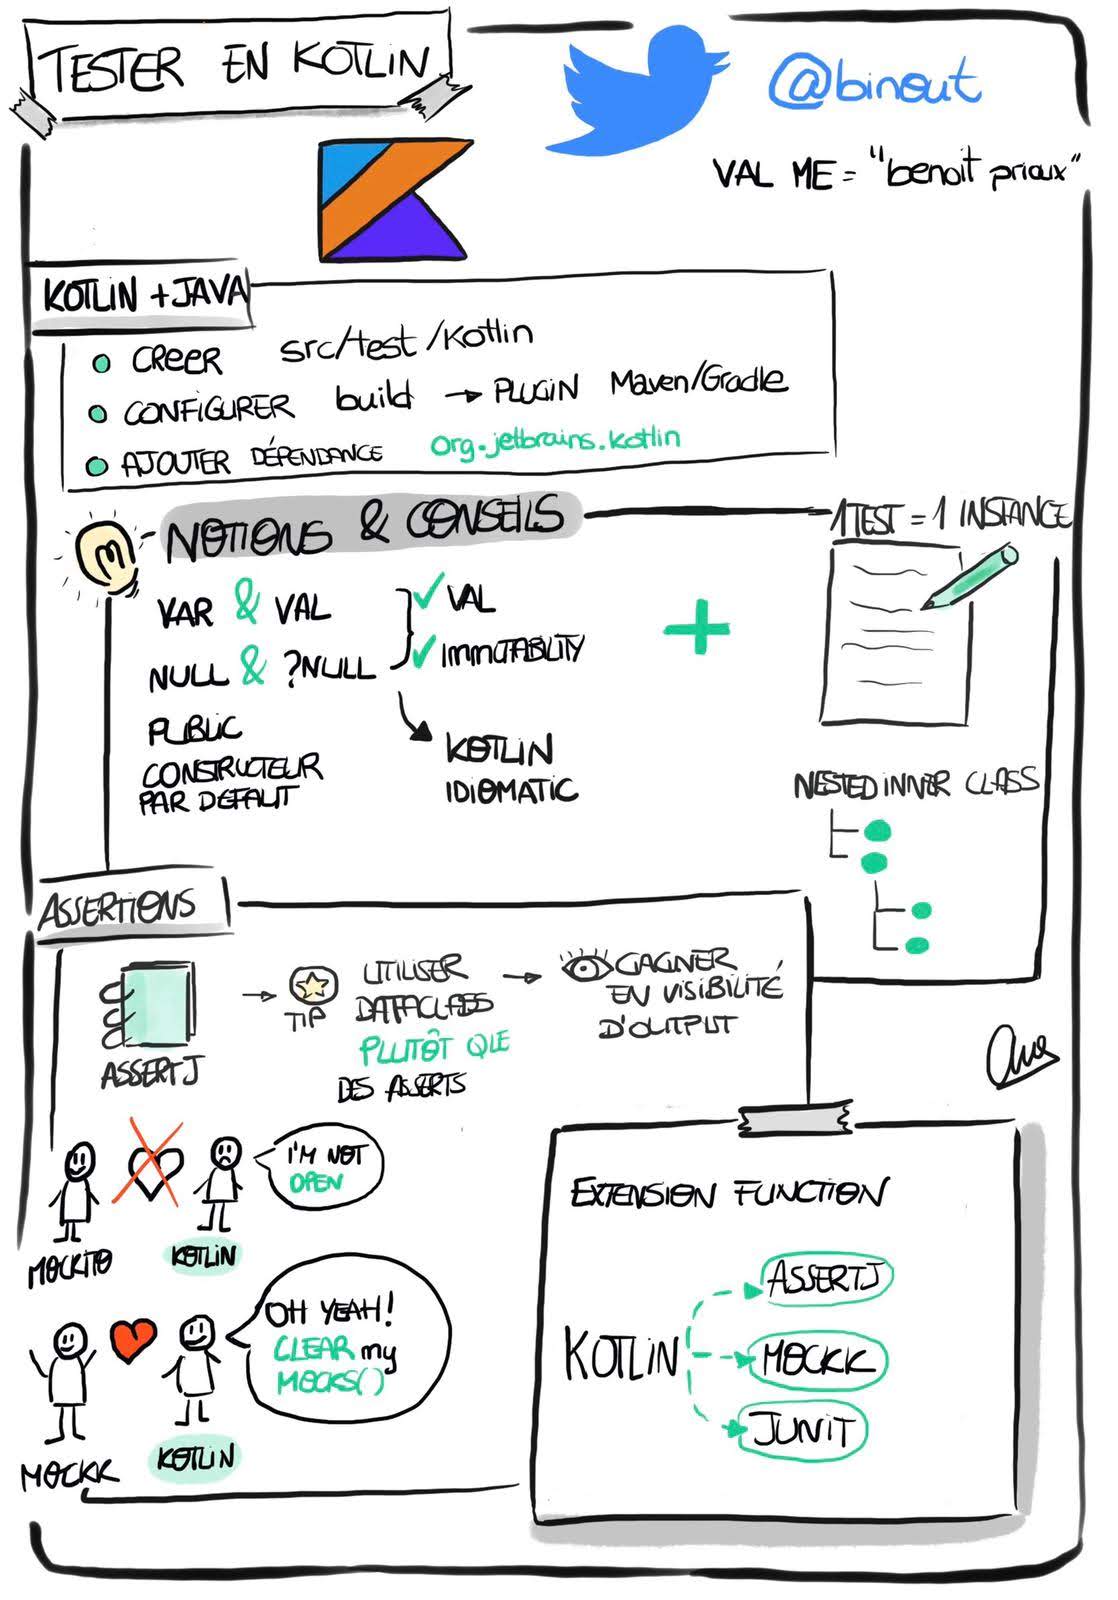 TESTER EN KOTLIN
@binout
VAL ME = "benoit prioux"
KOTLIN + JAVA
CREER src/test/Kotlin
CONFIGURER build → PLUGIN Maven/Gradle
AJOUTER DÉPENDANCE org.jetbrains.kotlin
NOTIONS & CONSEILS
VAR & VAL
NULL & ?NULL
PUBLIC
CONSTRUCTEUR
PAR DEFAUT
✓ VAL
✓ IMMUTABILITY
KOTLIN
IDIOMATIC
+
1 TEST = 1 INSTANCE
NESTED INNER CLASS
ASSERTIONS
ASSERTJ
→ TIP
UTILISER
DATACLASS
PLUTÔT QUE
DES ASSERTS
→ GAGNER
EN VISIBILITÉ
D'OUTPUT
I'M NOT
OPEN
MOCKITO
KOTLIN
OH YEAH!
CLEAR my
MOCKS()
MOCKK
KOTLIN
EXTENSION FUNCTION
KOTLIN
ASSERTJ
MOCKK
JUNIT